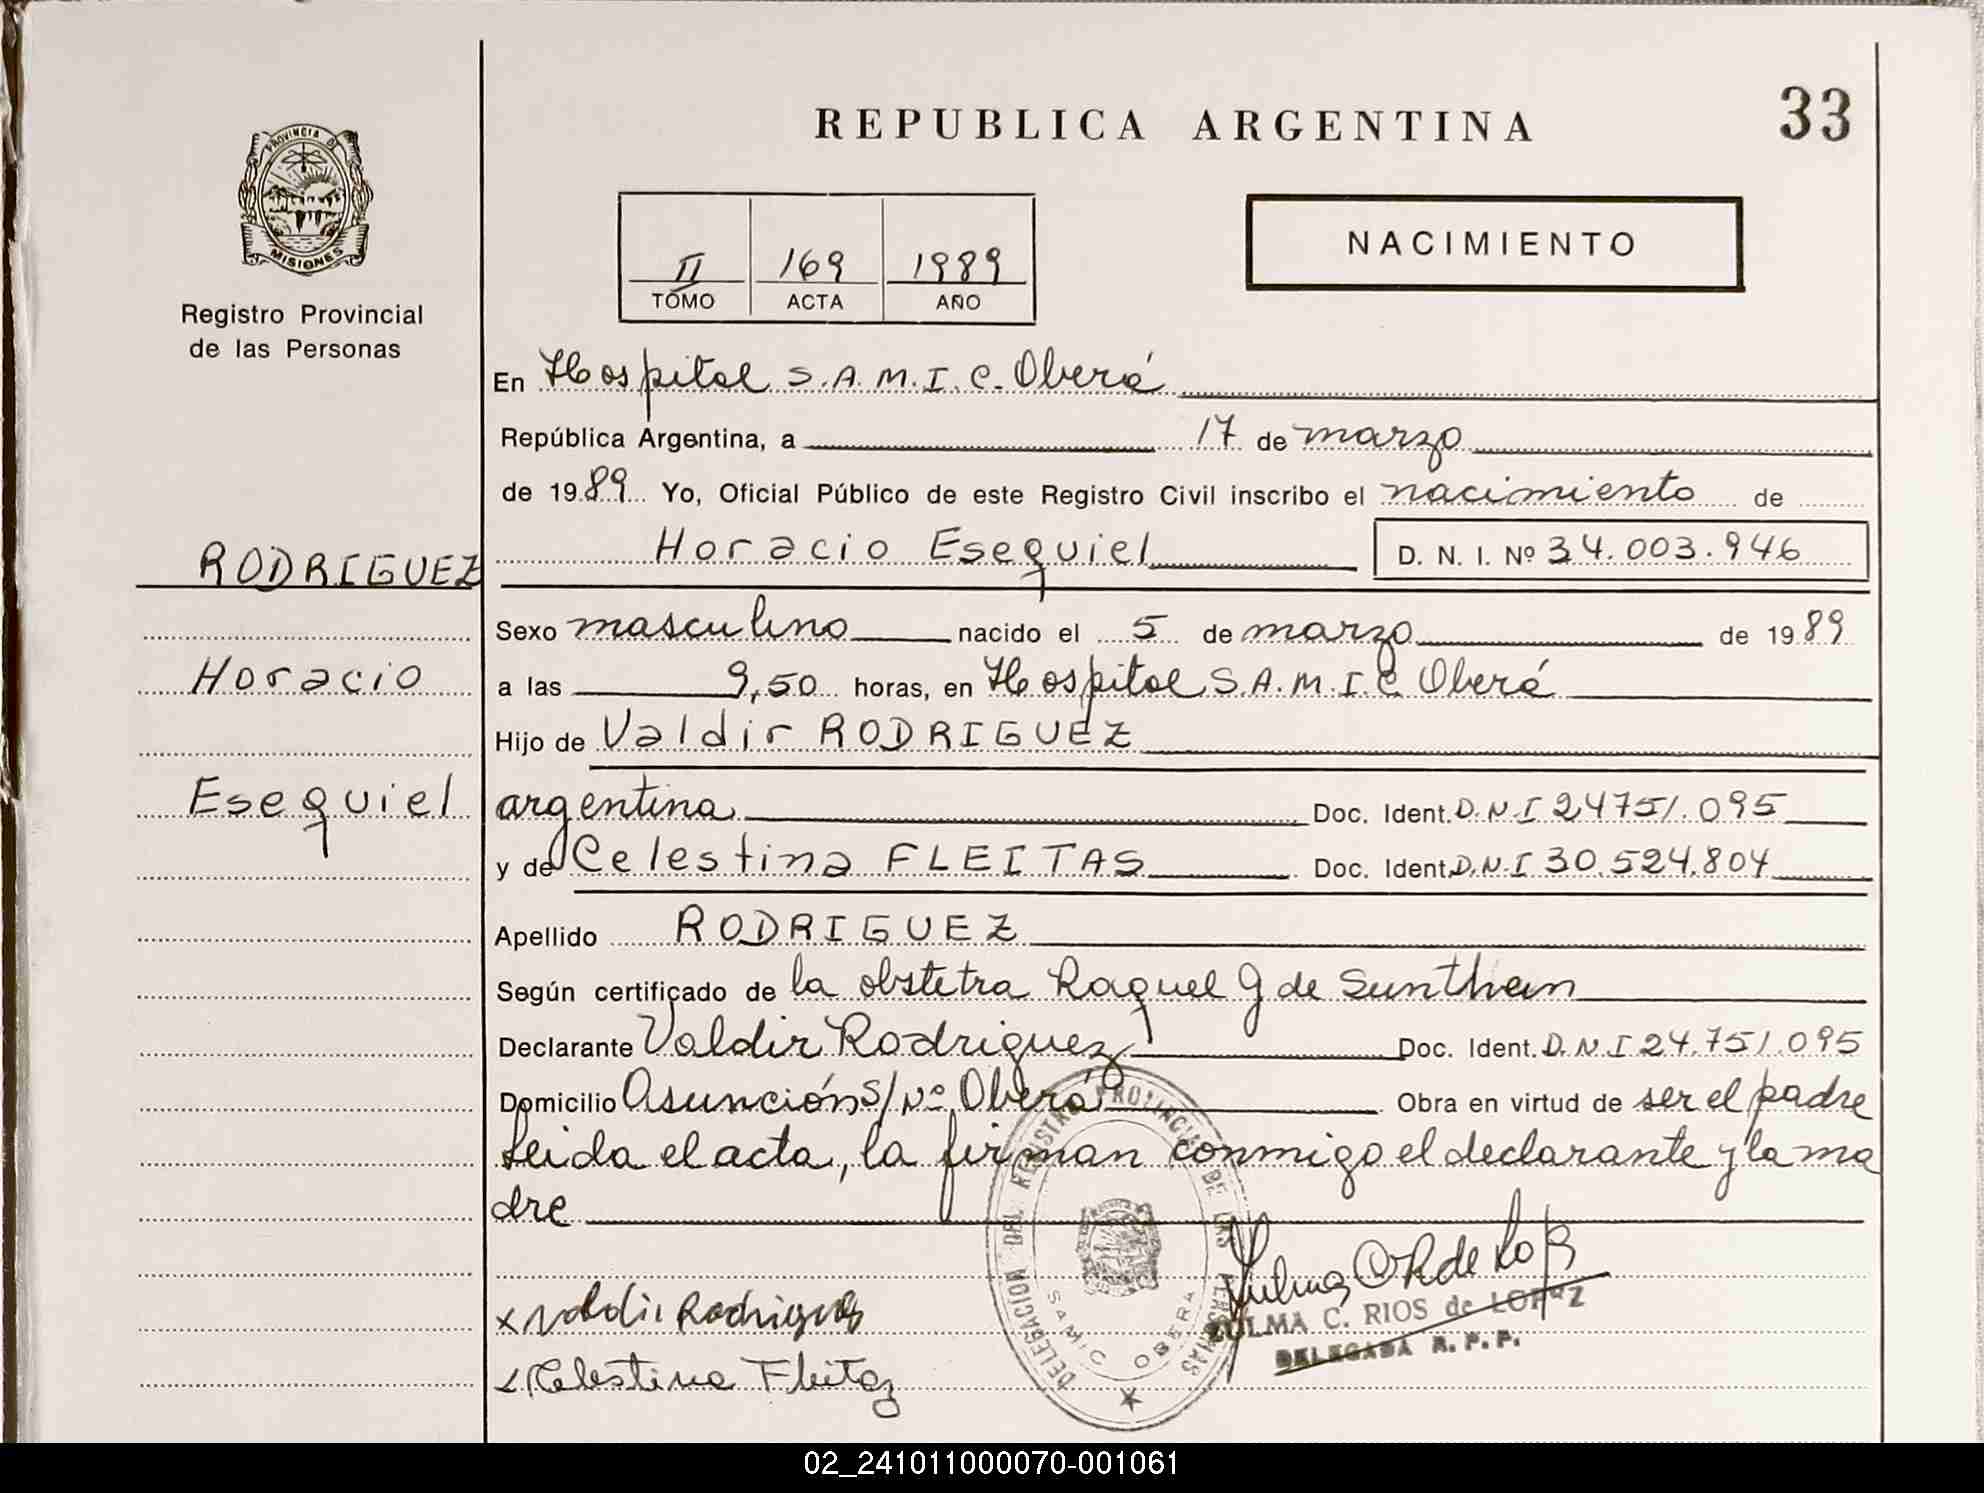 REPUBLICA ARGENTINA
33
PROVINCIA DE
MISIONES
Registro Provincial
de las Personas
II 169 1989
TOMO ACTA AÑO
NACIMIENTO
En Hospital S.A.M.I.C. Oberá
República Argentina, a 17 de marzo
de 1989 Yo, Oficial Público de este Registro Civil inscribo el nacimiento de
Horacio Esequiel D. N. I. Nº 34.003.946
RODRIGUEZ
Horacio
Esequiel
Sexo masculino nacido el 5 de marzo de 1989
a las 9,50 horas, en Hospital S.A.M.I.C. Oberá
Hijo de Valdir RODRIGUEZ
argentina Doc. Ident. D.N.I 24751.095
y de Celestina FLEITAS Doc. Ident. D.N.I 30.524.804
Apellido RODRIGUEZ
Según certificado de la obstetra Raquel G de Sunthein
Declarante Valdir Rodriguez Doc. Ident. D.N.I 24.751.095
Domicilio Asunción S/Nº Oberá Obra en virtud de ser el padre
Leida el acta, la firman conmigo el declarante y la ma
dre
x Valdir Rodriguez
x Celestina Fleitaz
DELEGACION DEL REGISTRO PROVINCIAL DE LAS PERSONAS
SAMIC OBERA
ZULMA C. RIOS de LOPEZ
DELEGADA R. P. P.
02_241011000070-001061